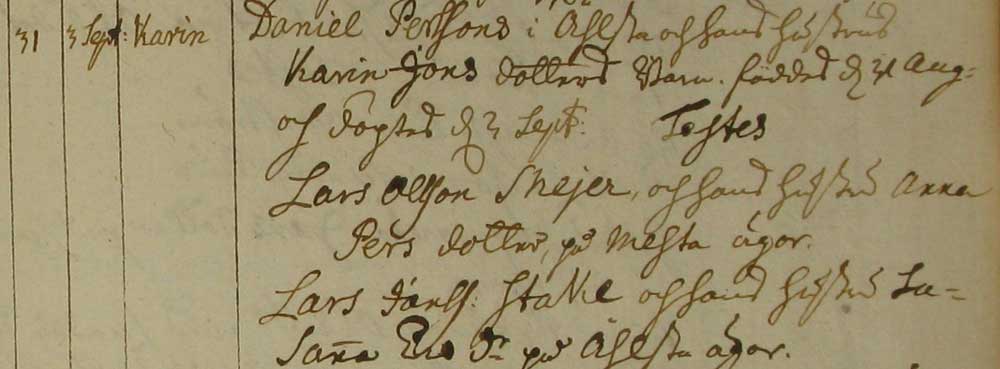 31 3 Sept: Karin Daniel Perssons i Åhlsta och hans hustrus
Karin Jons dotters Barn. föddes d 31 Aug:
och döptes d 3 Sept: Testes
Lars Olsson Mejer, och hans hustru Anna
Pers dotter, på Mesta ägor.
Lars Jansß: Stake och hans hustru Su=
sanna Dr på Åhlsta ägor.